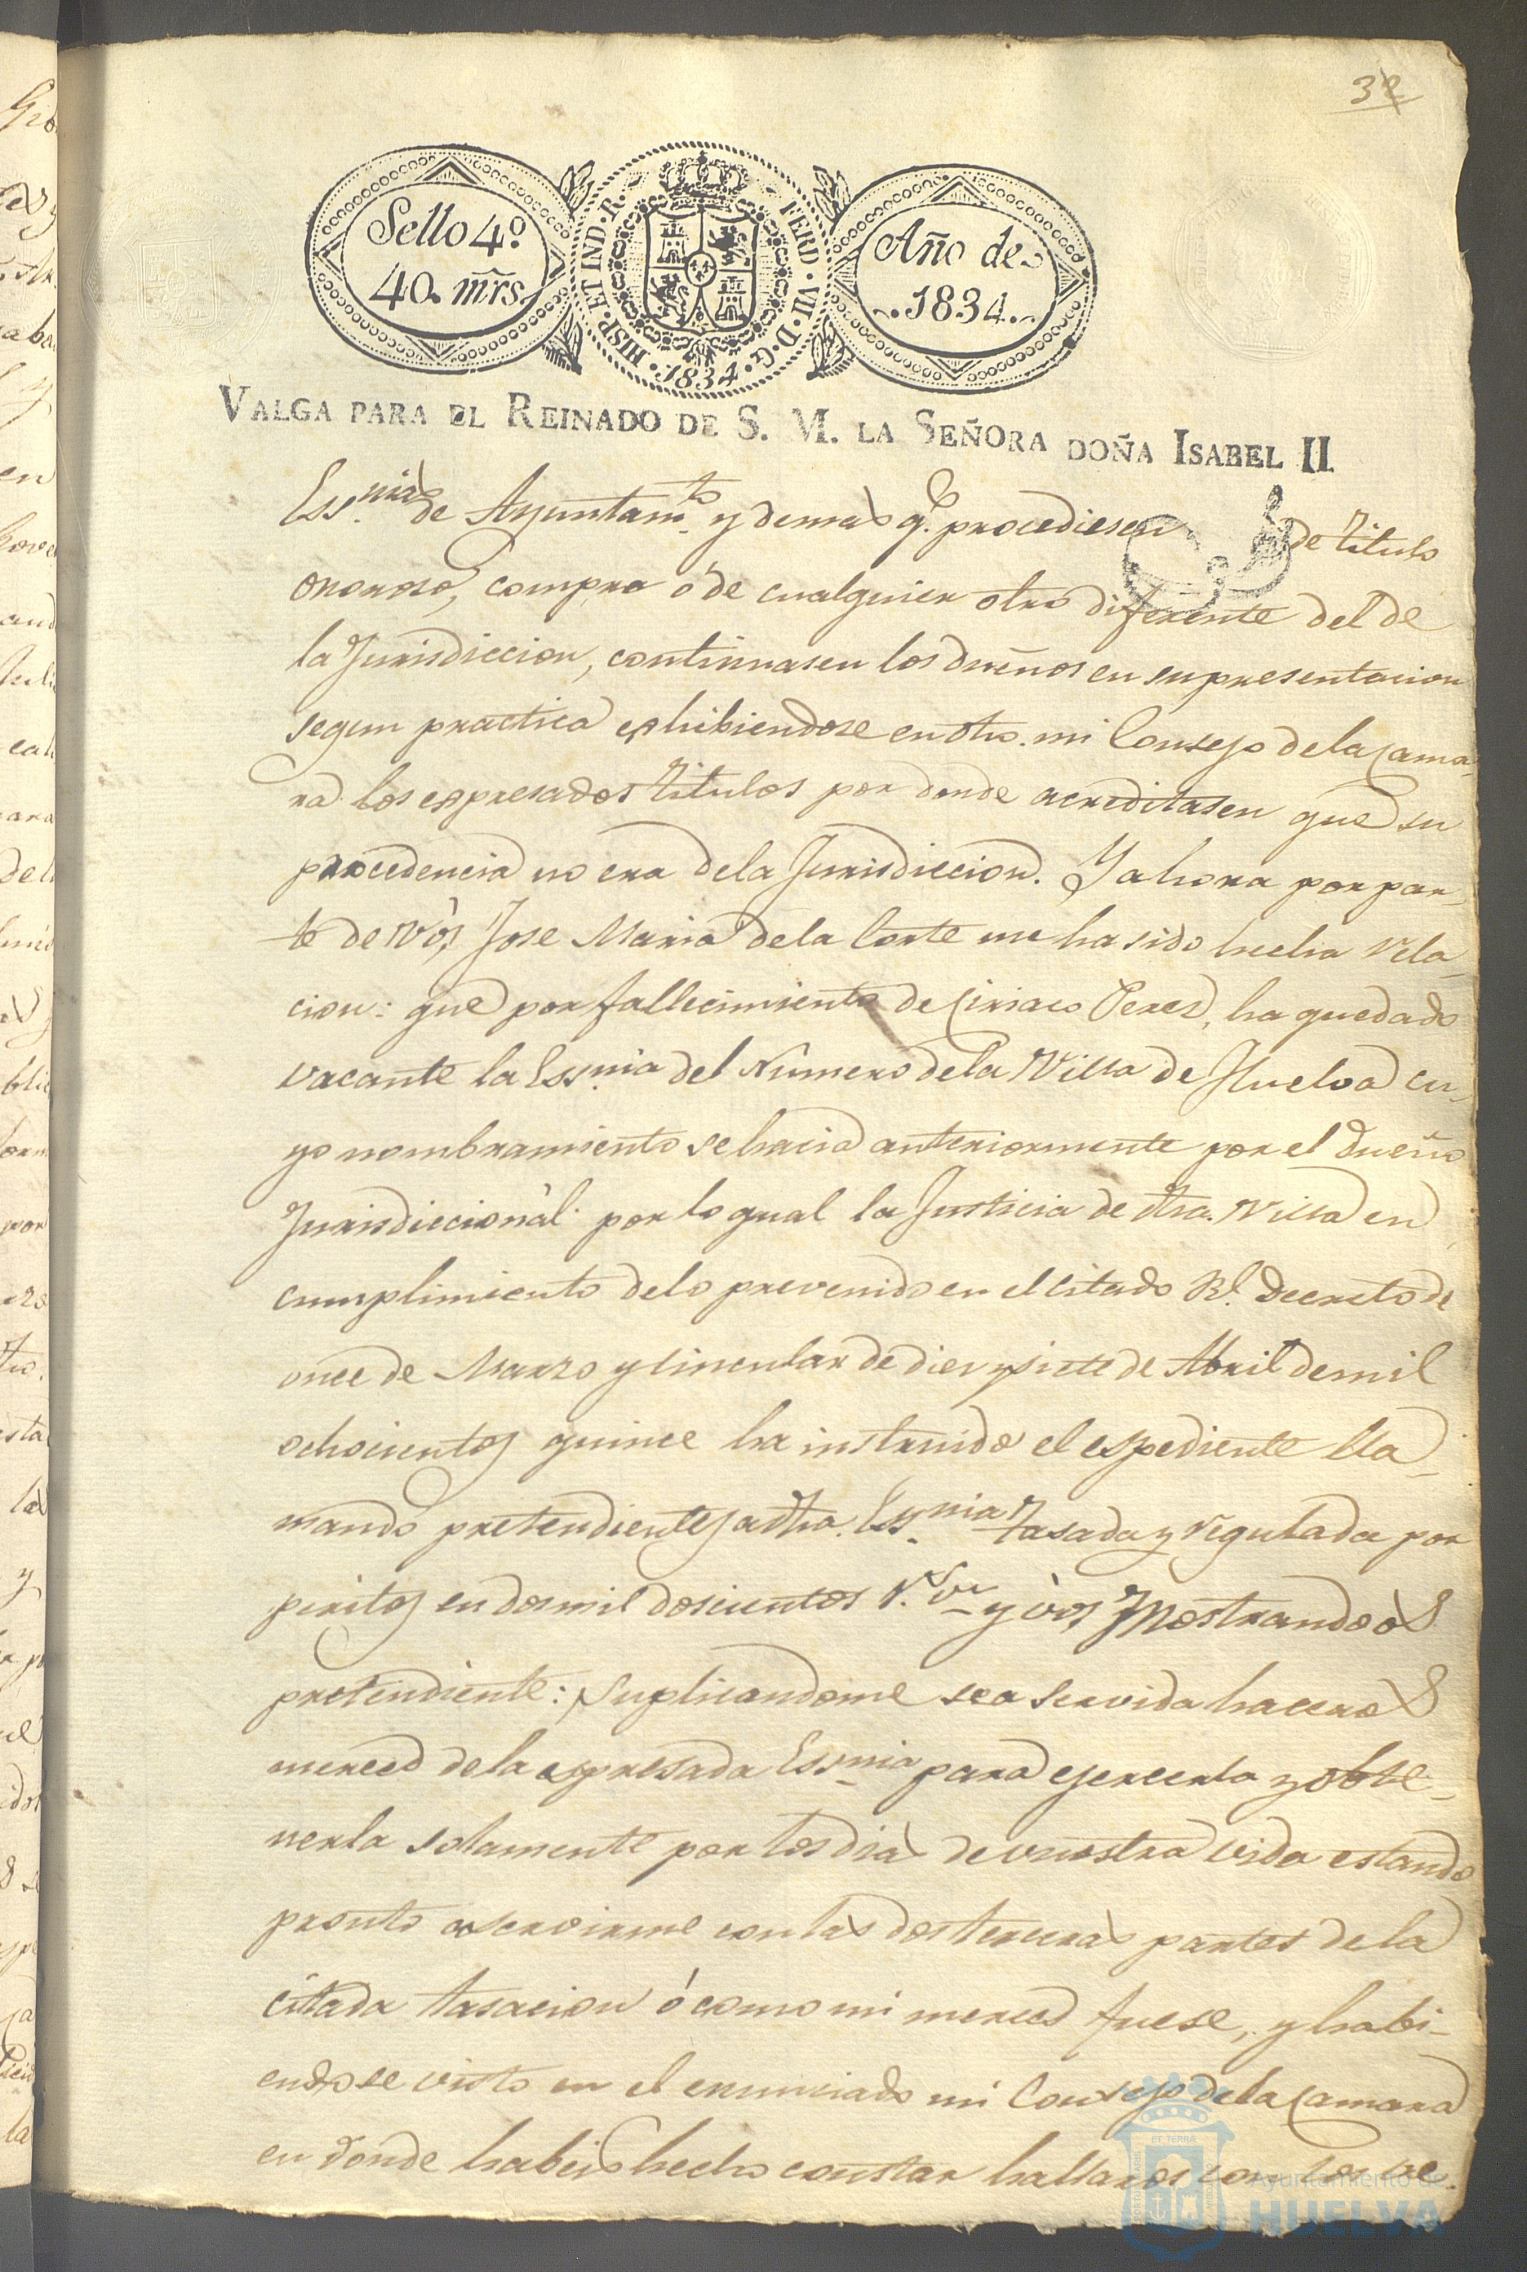 32
Sello 4.º
40. mrs.
HISP. ET IND. R. FERD. VII. D. G. 1834.
Año de
1834.
VALGA PARA EL REINADO DE S. M. LA SEÑORA DOÑA ISABEL II.
Ess.nias de Ayuntam.to y demas q.e procediesen de titulo
oneroso, compra ó de cualquier otro diferente del de
la Jurisdiccion, continuasen los dueños en su presentacion
segun practica exhibiendose en dho. mi Consejo de la Cama-
ra los expresados titulos por donde acreditasen que su
procedencia no era de la Jurisdiccion. Y ahora por par-
te de vós, Jose Maria de la Corte me ha sido hecha rela-
cion: que por fallecimiento de Ciriaco Perez, ha quedado
vacante la Ess.nia del Numero de la Villa de Huelva cu-
yo nombramiento se hacia anteriormente por el dueño
Jurisdiccional. por lo qual la Justicia de dha. Villa en
cumplimiento de lo prevenido en el citado Rl. Decreto de
once de Marzo y circular de diez y siete de Abril de mil
ochocientos quince ha instruido el espediente lla-
mando pretendientes a dha. Ess.nia tasada y regulada por
peritos en dos mil doscientos r.s v.n y vos mostrandoos
pretendiente: Suplicandome sea servida haceros
merced de la espresada Ess.nia para ejercerla y obte-
nerla solamente por los dias de vuestra vida estando
pronto a servirme con las dos terceras partes de la
citada tasacion ó como mi merced fuese, y habi-
endose visto en el enunciado mi Consejo de la Camara
en donde habeis hecho constar hallaros con los re-
Ayuntamiento de
HUELVA